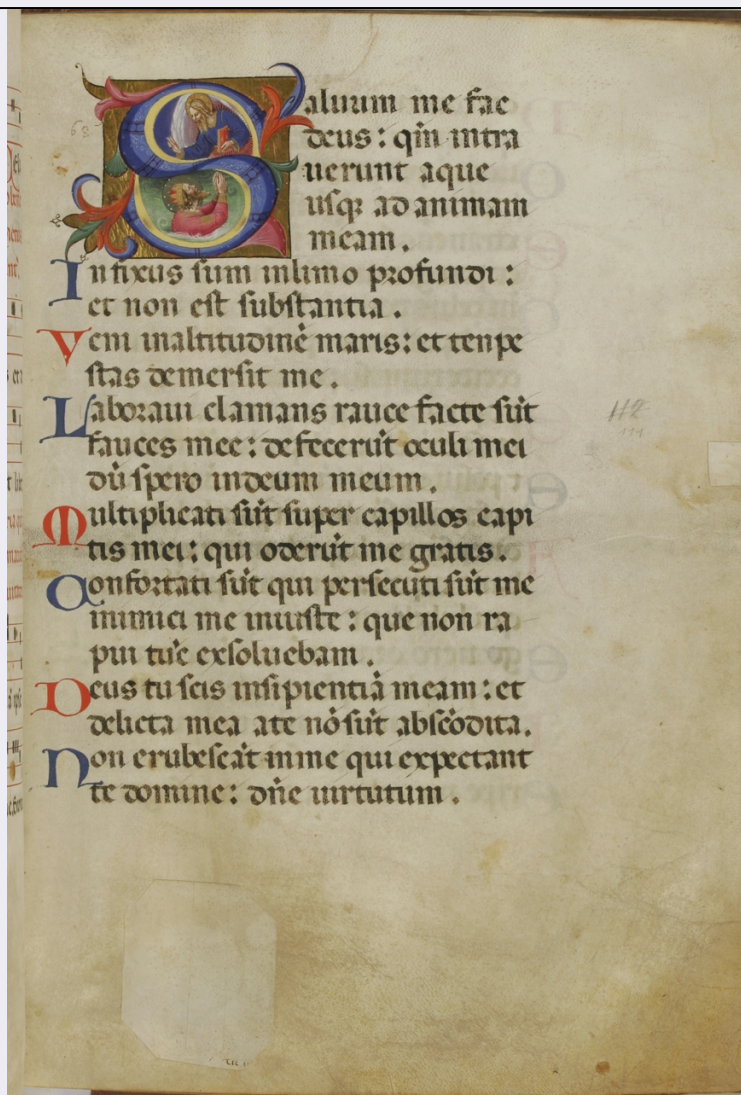 Saluum me fac
deus : qm̄ intra
uerunt aque
usqꝫ ad animam
meam .
Infixus sum inlimo profundi :
et non est substantia .
Veni inaltitudinē maris : et tenpe
stas demersit me .
Laboraui clamans rauce facte sūt
fauces mee : defecerūt oculi mei
dū spero indeum meum .
Multiplicati sūt super capillos capi
tis mei : qui oderūt me gratis .
Confortati sūt qui persecuti sūt me
inimici me iniuste : que non ra
pui tūc exsoluebam .
Deus tu scis insipientiā meam : et
delicta mea ate nō sūt abscōdita .
Non erubescāt inme qui expectant
te domine : dn̄e uirtutum .